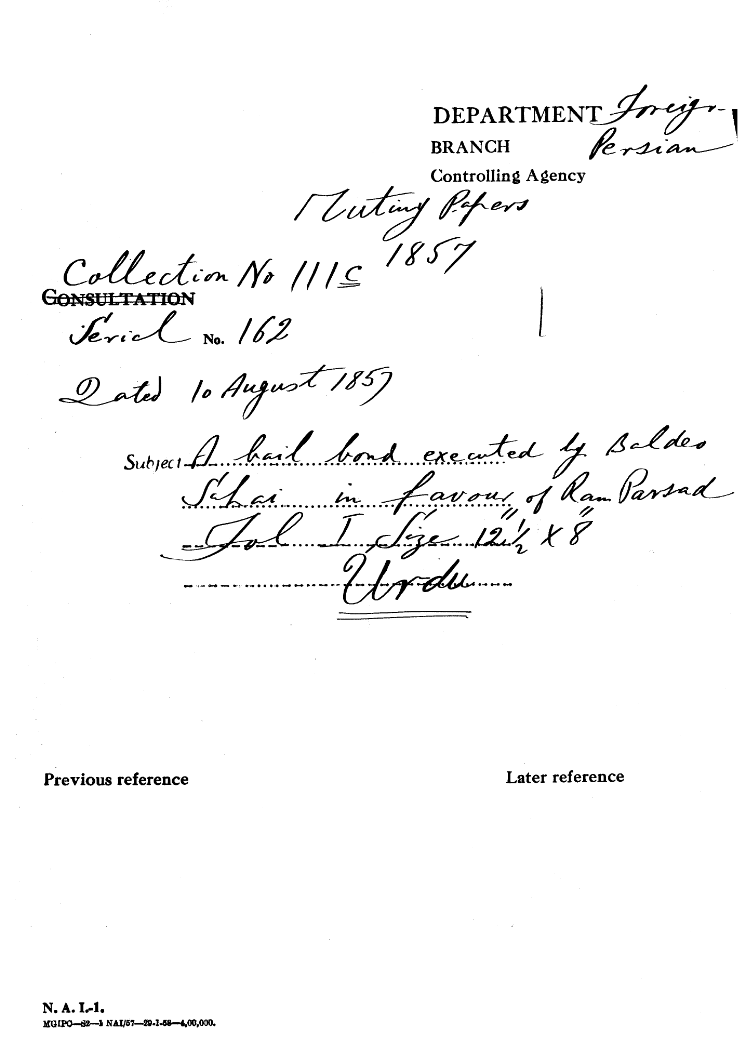 DEPARTMENT Foreign
BRANCH Persian
Controlling Agency
Mutiny Papers
1857
Collection No 111C
CONSULTATION
Serial No. 162
Dated 10 August 1857
Subject A bail bond executed by Baldeo
Sahai in favour of Ram Parsad
Fol I Size 12½" X 8"
Urdu
Previous reference Later reference
N. A. I.-1.
MGIPC—S2—1 NAI/57—29-1-58—4,00,000.